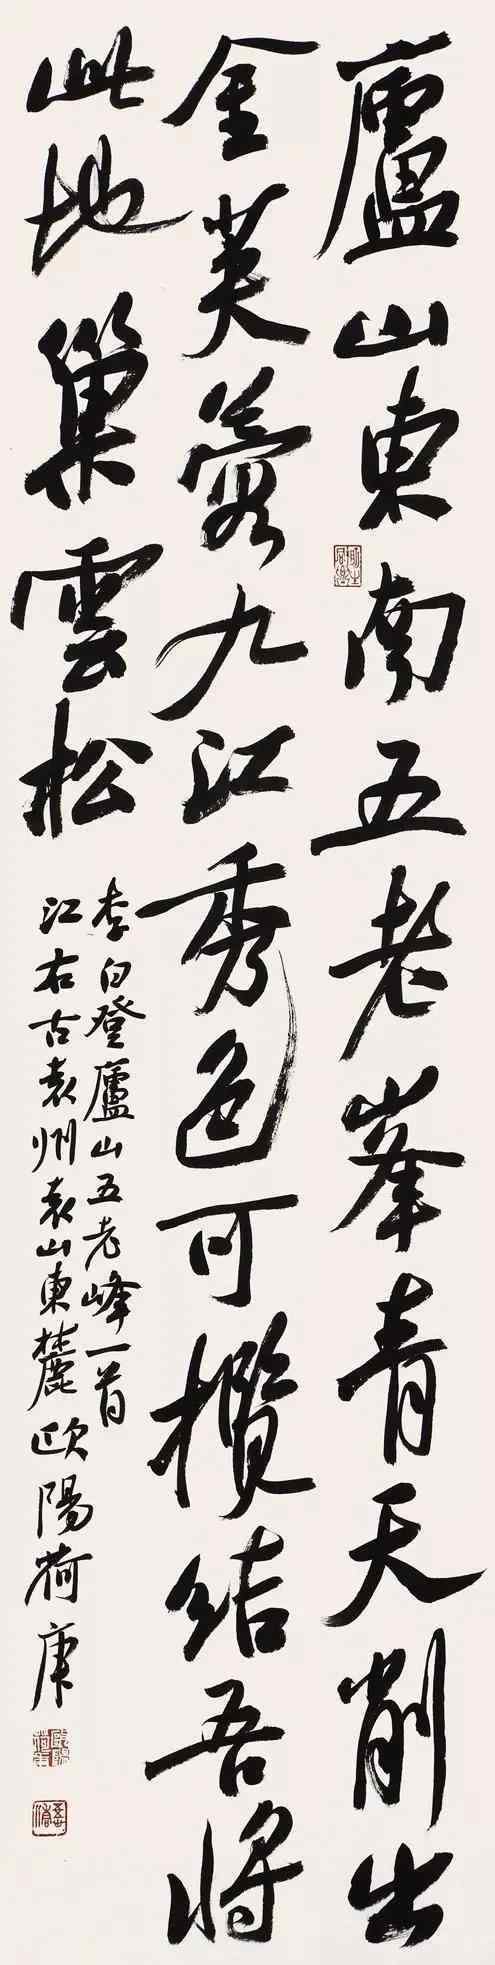 廬山東南五老峯青天削出
金芙蓉九江秀色可攬結吾將
此地巢雲松
李白登廬山五老峰一首
江右古袁州袁山東麓歐陽荷庚